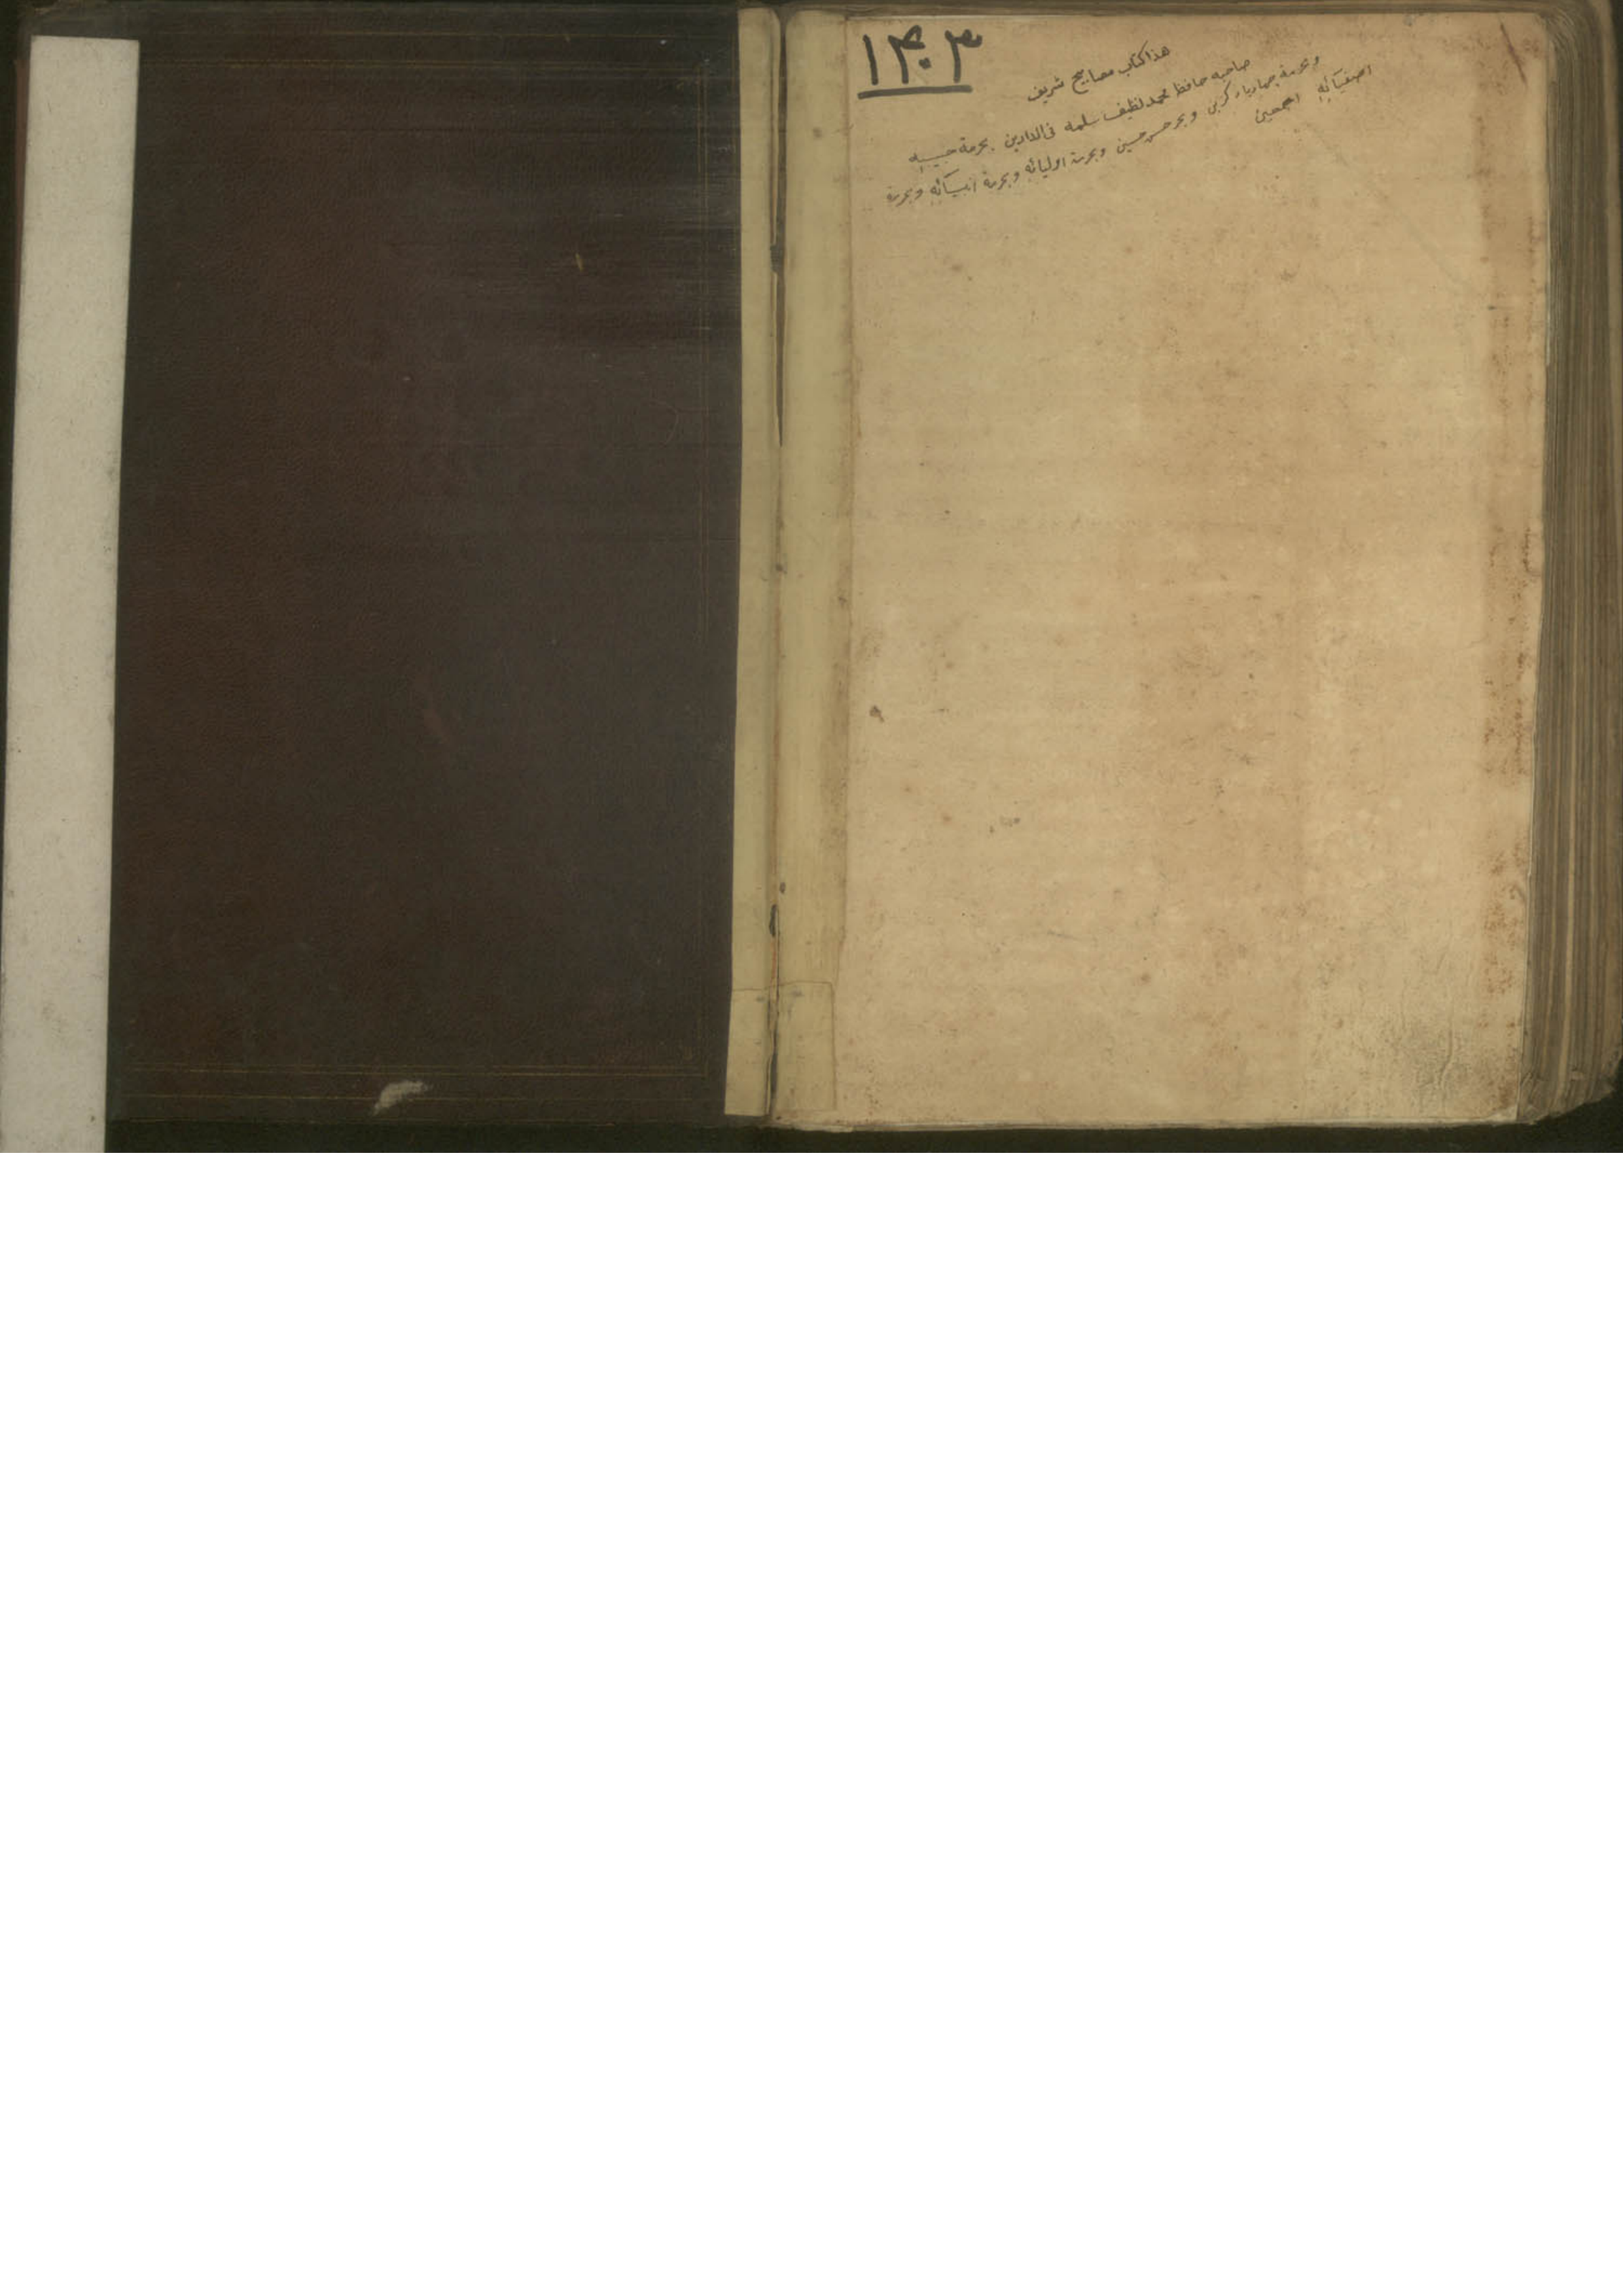 ۱۴۰۳
هذا كتاب مصابيح شريف
صاحبه حافظ محمد لطيف سلمه فى الدارين بحرمة حبيبه
وبحرمة چهار يار كزين وبحرمة حسن حسين وبحرمة اوليائه وبحرمة انبيآئه وبحرمة
اصفيآئه اجمعين